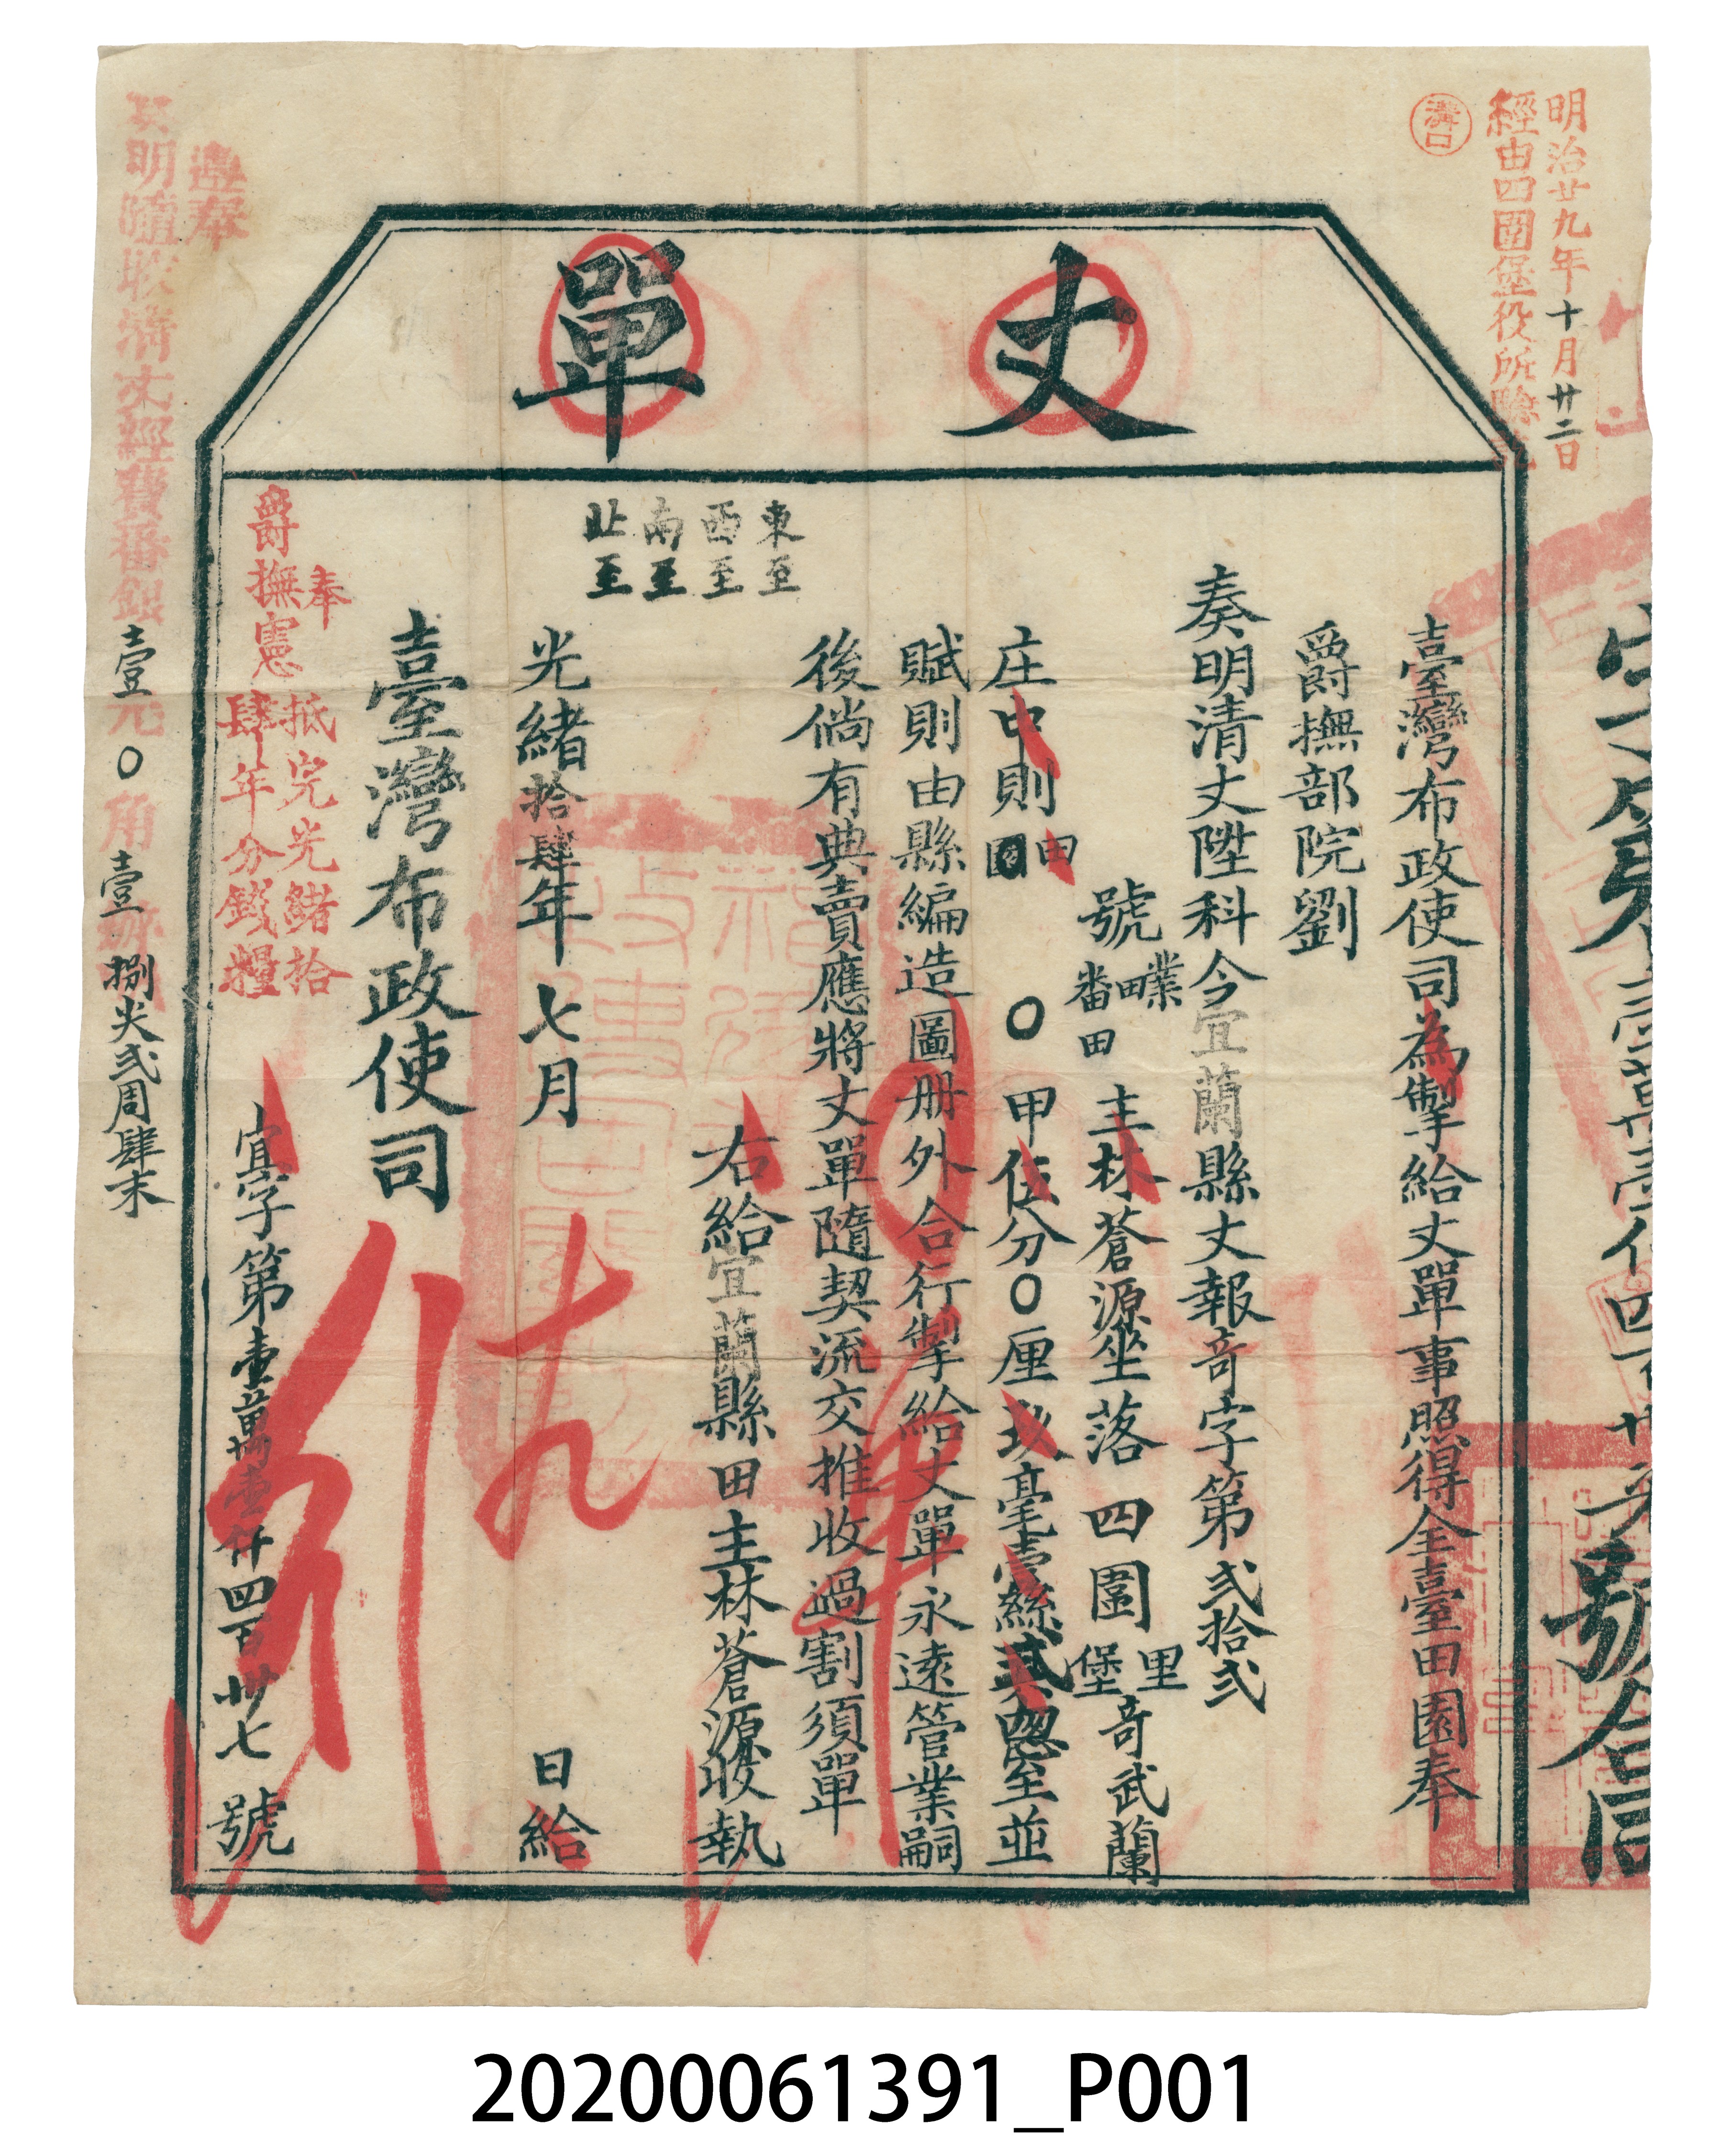 丈單
明治廿九年十月廿二日
經由四圍堡役所
溝口
臺灣布政使司為掣給丈單事照得全臺田園奉
爵撫部院劉
奏明清丈陞科今宜蘭縣丈報奇字第弍拾弍
號業
番田
主林蒼源坐落四圍
里
堡
奇武蘭
庄中則
田
園
〇甲伍分〇厘玖毫壹絲弍忽至並
賦則由縣編造圖册外合行掣給丈單永遠管業嗣
後倘有典賣應將丈單隨契流交推收過割須單
東至
西至
南至
北至
右給宜蘭縣田主林蒼源收執
光緒拾肆年七月
日給
臺灣布政使司
奉
爵撫憲
抵完光緒拾
肆年分錢糧
宜字第壹萬壹仟四百卅七號
遵奉
明隨收清丈經費番銀壹元〇角壹
捌尖弍周肆末
號合同
20200061391_P001